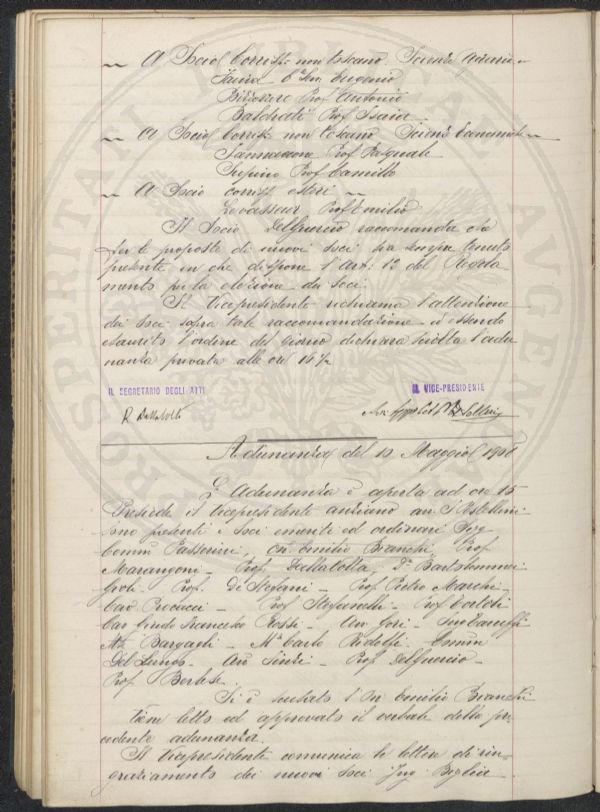 A Socio Corrisp. non toscano. Scienze
Faina C.te Sen. Eugenio
Bizzozero Prof. Antonio
Baldrati Prof. Isaia
A Socio Corrisp. non toscano Scienze Economiche
Jannaccone Prof. Pasquale
Supino Prof. Camillo
A Socio corrisp. esteri
Levasseur Prof. Emilio
Il Socio Delguercio raccomanda che
per le proposte di nuovi soci sia sempre tenuto
presente che dispone l'Art: 12 del Regola
mento per la elezione dei soci.
Il Vicepresidente richiama l'attenzione
dei soci sopra tale raccomandazione ed essendo
esaurito l'ordine del giorno dichiara sciolta l'adu
nanza privata alle ore 16 ½
IL SEGRETARIO DEGLI ATTI
IL VICE-PRESIDENTE
R. Dallavolta
Adunanza del Maggio 1908
L'Adunanza è aperta ad ore 15
Presiede il Vicepresidente anziano
sono presenti i soci emeriti ed ordinari Sigg.
Comm. Passerini, On. Emilio Bianchi, Prof.
Marangoni - Prof. Dallavolta - Dr. Bartolommei
Gioli - Prof. De Stefani - Prof. Pietro Marchi
Cav. Procacci - Prof. Stefanelli - Prof.
Cav. Guido Francesco Rossi - Avv. Gori - Ing.
Mse Bargagli - Mse Carlo Ridolfi - Comm.
Del Lungo - Avv. - Prof. Delguercio -
Prof. Berlese.
Si è scusato l'On. Emilio Bianchi
Vien letto ed approvato il verbale della pre
cedente adunanza.
Il Vicepresidente comunica le lettere di rin-
graziamento dei nuovi soci Ing.